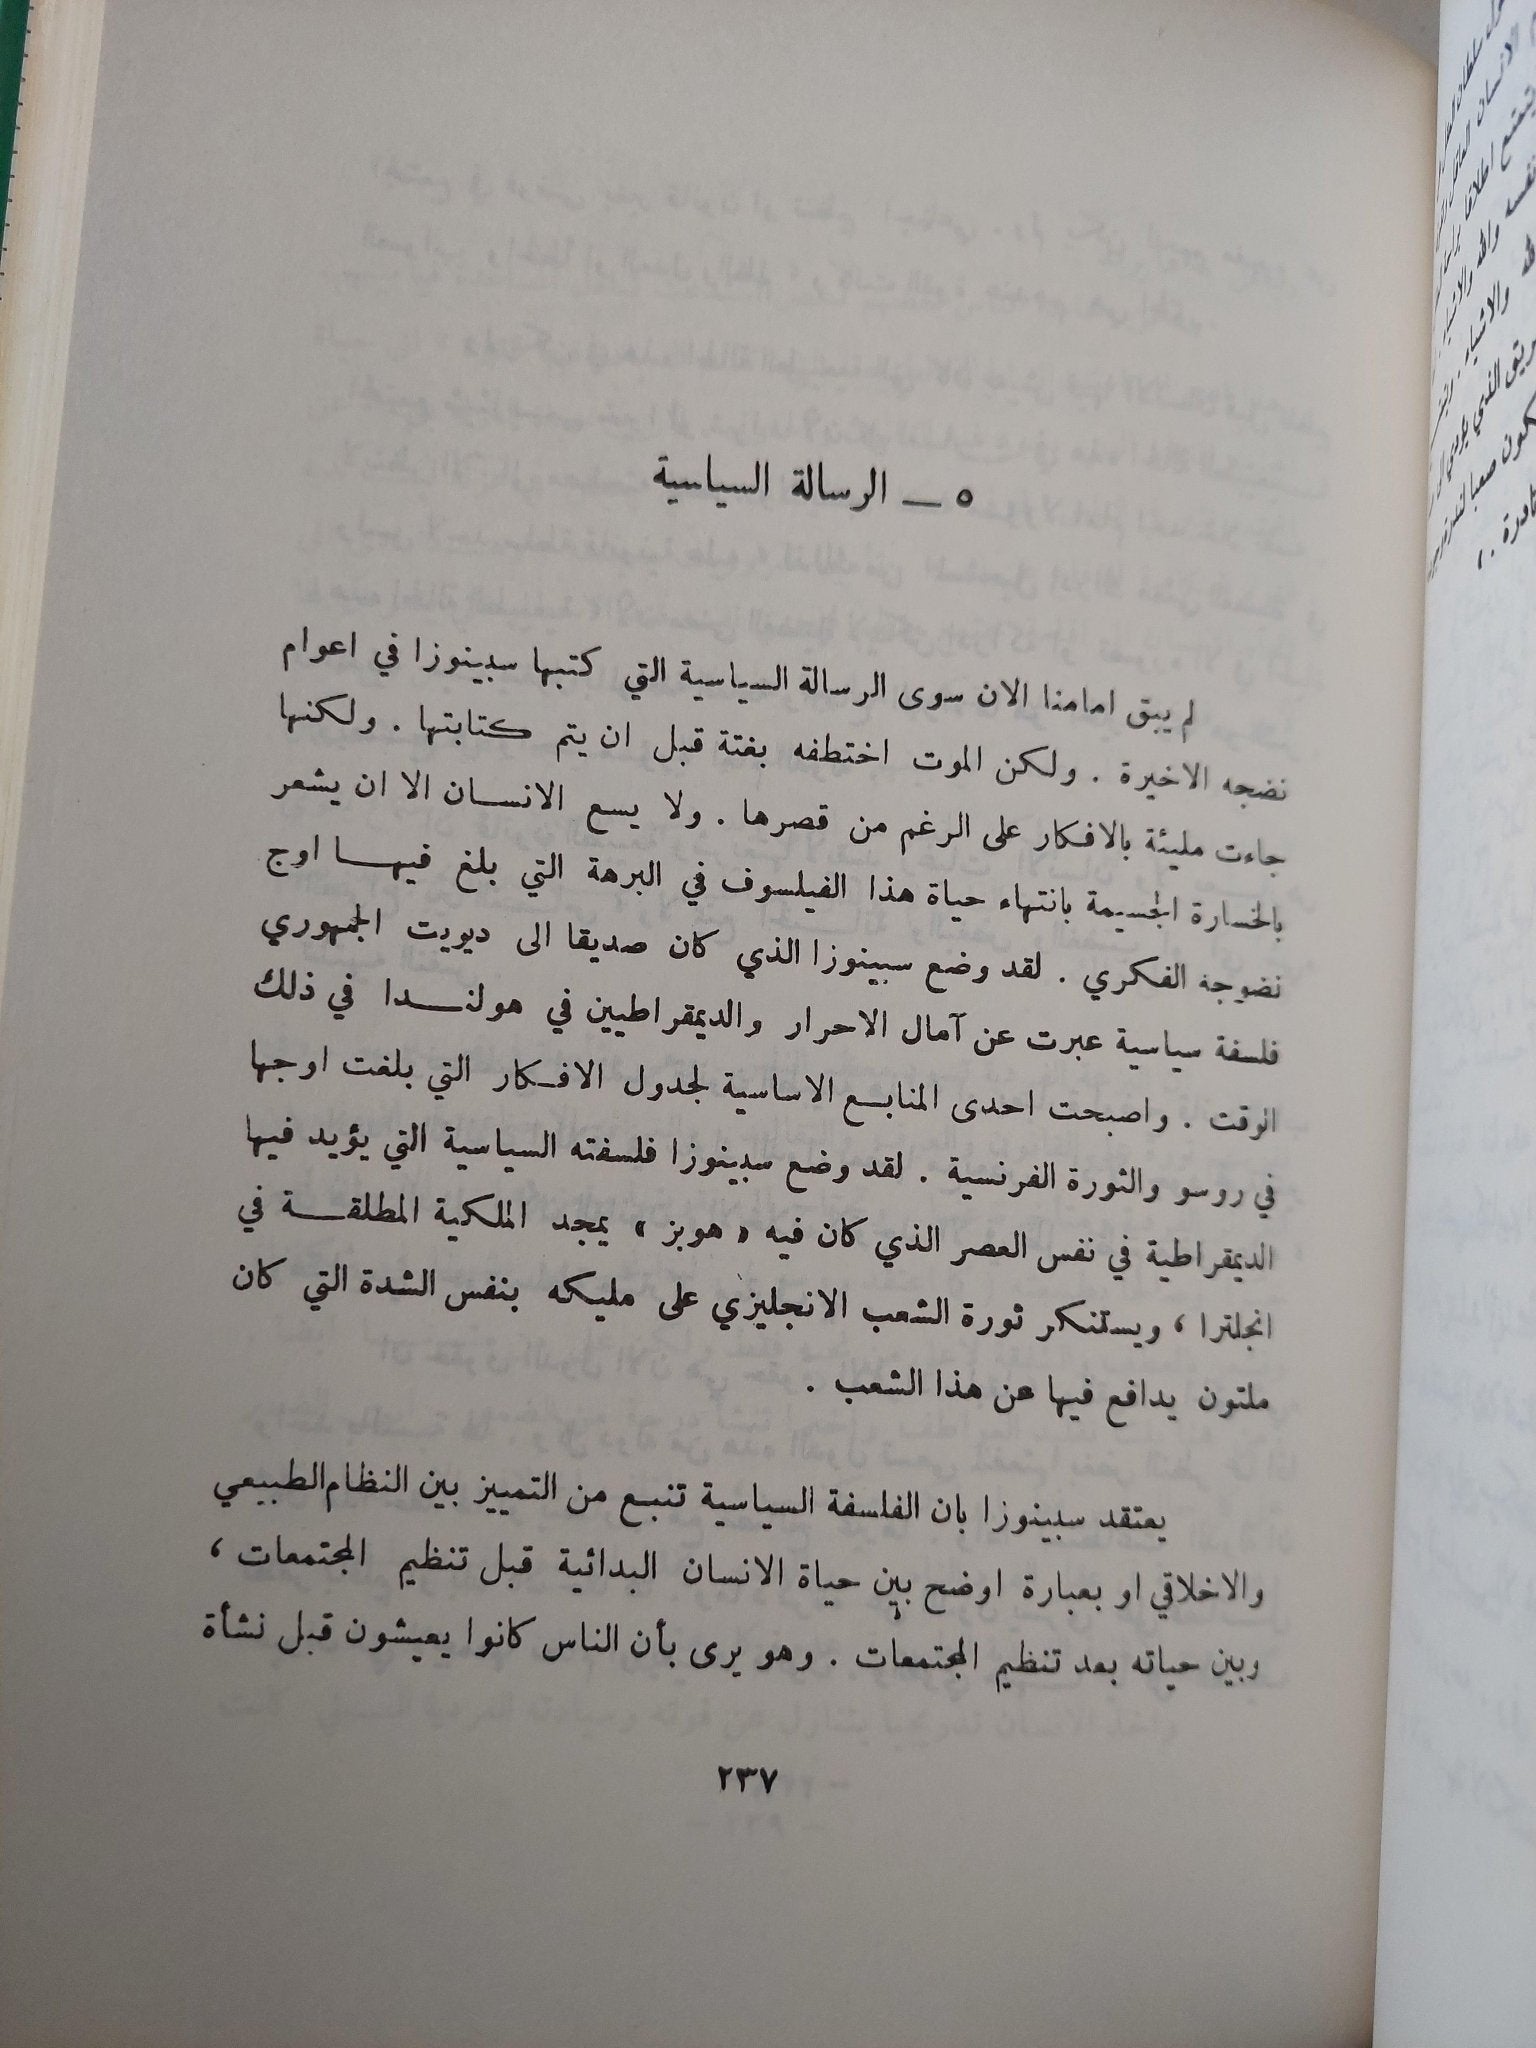 ٥ ــ الرسالة السياسية
لم يبق امامنا الان سوى الرسالة السياسية التي كتبها سبينوزا في اعوام
نضجه الاخيرة . ولكن الموت اختطفه بغتة قبل ان يتم كتابتها . ولكنها
جاءت مليئة بالافكار على الرغم من قصرها . ولا يسع الانسان الا ان يشعر
بالخسارة الجسيمة بانتهاء حياة هذا الفيلسوف في البرهة التي بلغ فيها اوج
نضوجه الفكري . لقد وضع سبينوزا الذي كان صديقا الى ديويت الجمهوري
فلسفة سياسية عبرت عن آمال الاحرار والديمقراطيين في هولندا في ذلك
الوقت . واصبحت احدى المنابع الاساسية لجدول الافكار التي بلغت اوجها
في روسو والثورة الفرنسية . لقد وضع سبينوزا فلسفته السياسية التي يؤيد فيها
الديمقراطية في نفس العصر الذي كان فيه « هوبز » يمجد الملكية المطلقة في
انجلترا ، ويستنكر ثورة الشعب الانجليزي على مليكه بنفس الشدة التي كان
ملتون يدافع فيها عن هذا الشعب .
يعتقد سبينوزا بان الفلسفة السياسية تنبع من التمييز بين النظام الطبيعي
والاخلاقي او بعبارة اوضح بين حياة الانسان البدائية قبل تنظيم المجتمعات ،
وبين حياته بعد تنظيم المجتمعات . وهو يرى بأن الناس كانوا يعيشون قبل نشأة
٢٣٧